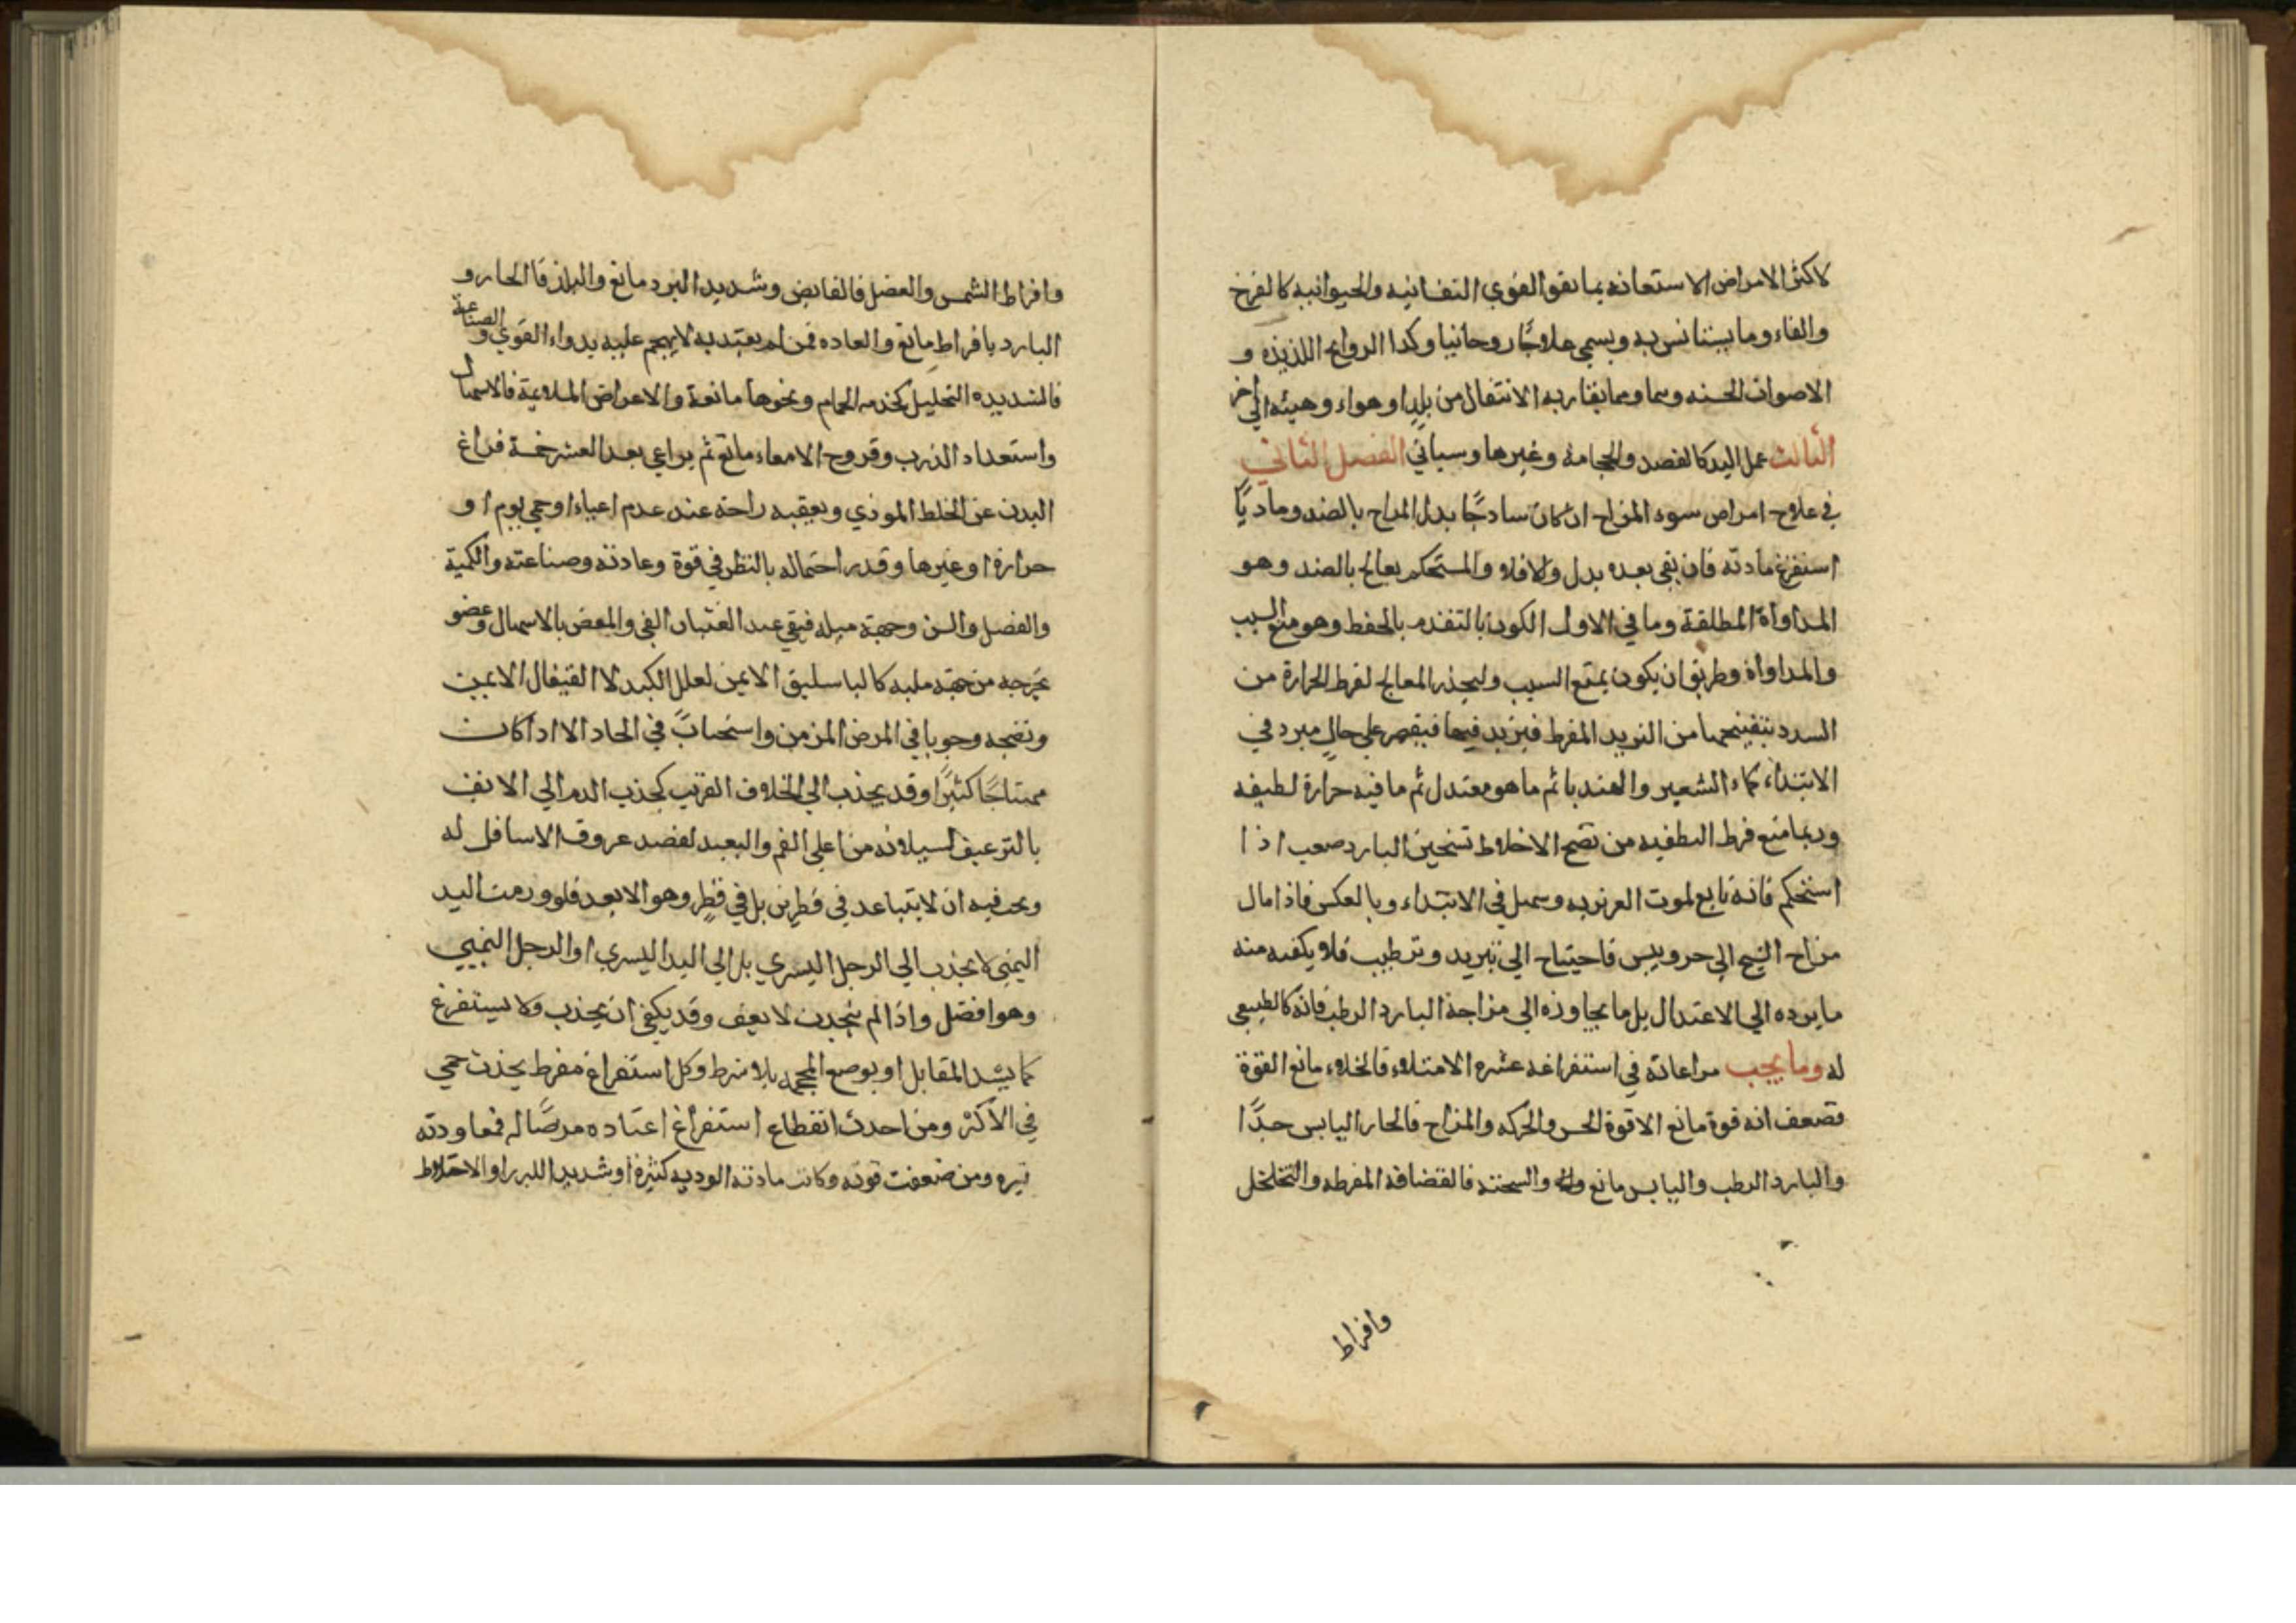 لاكثر الامراض الاستعانه بما يقو القوي النفسانيه والحيوانيه كالفرح
والغاء وما يستانس به ويسمي علاوجًا روحانيا وكذا الروايح اللذيذه و
الاصوات الحسنه وسما ومما يقاربه الانتقال من بلد او هواء وهيئه الي اخر
الثالث عمل اليد كالفصد والحجامة وغيرها وسياتي الفصل الثاني
في علاج امراض سوء المزاج ان كان سادجًا بدل المزاج بالضد وماديًا
استفرغ مادته فان بقي بعده بدل والا فلا والمستحكم يعالج بالضد وهو
المداواة المطلقة وما في الاول الكون بالتقدم بالحفظ وهو منع السبب
والمداواة وطريق ان يكون يمنع السبب وليحذر المعالج لفرط الحرارة من
السدد من التبريد المفرط فيزيد فيها فيقصر علي حال مبرد في
الابتداء كماء الشعير والهندبا ثم ما هو معتدل ثم ما فيه حرارة لطيفه
وربما منع فرط التطفيه من نضج الاخلاط تسخين البارد صعب اذا
استحكم فانه تابع لموت الغريزيه وسهل في الابتداء وبالعكس فاذا مال
مزاج الشيخ الي حر ويبس فاحتياج الي تبريد وترطيب فلا يكفيه منه
ما يرده الي الاعتدال بل ما يجاوزه الي مزاجة البارد الرطب فانه كالطبيعي
له وما يجب مراعاته في استفراغه عشره الامتلاء فالخلاء مانع القوة
فضعف انه قوة مانع الا قوة الحس والحركه والمزاج فالحار اليابس جدًا
والبارد الرطب واليابس مانع والسحنه فالقضافه المفرطه والتخلخل
وافراط
وافراط الشمس والفصل فالقايض وشديد البرد مانع والبلد فالحار و
البارد بافراط مانع والعاده فمن لم يعتد به لا يهجم عليه بدواء القوي والصناعة
فالشديده التحليل كخدمه الحمام ونحوها مانعة والاعراض الملاويمة فالاسهال
واستعداد الذرب وقروح الامعاء مانع ثم يراعي بعد العشر خمسة فراغ
البدن عن الخلط الموذي ويعقبه راحة عند عدم اعياء او حمي يوم او
حرارة او غيرها وقدر احتماله بالنظر في قوة وعادته وصناعته والكمية
والفصل والسن وجهة ميله فيقي عند الغثيان القي والمغص بالاسهال وعضو
يخرجه من جهة ميله كالباسليق الايمن لعلل الكبد لا القيفال الايمين
ونضجه وجوبا في المرض المزمن واستحبابً في الحاد الا اذا كان
مهتاجًا كثيرًا وقد يجذب الي الخلاف القريب كجذب الدم الي الانف
بالترعيف لسيلانه من اعلي الفم والبعيد لفصد عروق الاسافل له
ويجب فيه ان لا يتباعد في قطرين بل في قطر وهو الابعد فلو ورمت اليد
اليمني لا يجذب الي الرجل اليسري بل الي اليد اليسري او الرجل اليميني
وهو افضل واذا لم ينجذب لا يعنف وقد يكفي ان يجذب ولا يستفرغ
كما يشد المقابل او يوضع المحجمه بلا شرط وكل استفراغ مفرط يحدث حمي
في الاكثر ومن احدث انقطاع استفراغ اعتاده مرضًا له فمعاودته
تبره ومن ضعفت قوته وكانت مادته الرديه كثيرة او شديد اللبرر او الاختلاط